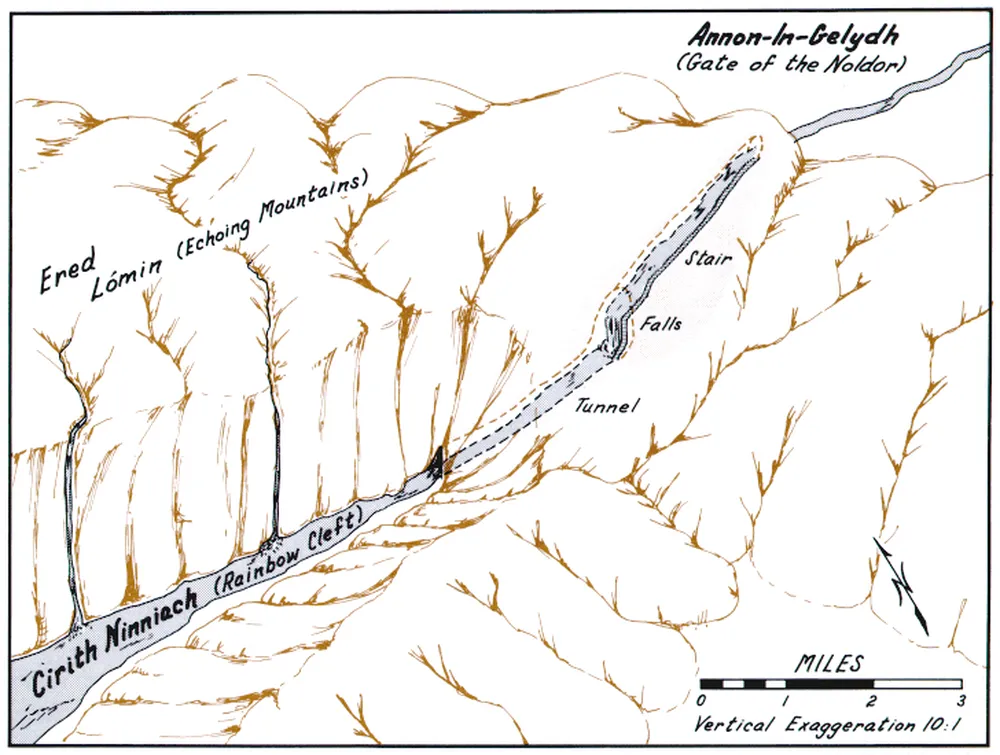 Annon-In-Gelydh
(Gate of the Noldor)
Ered
Lómin (Echoing Mountains)
Stair
Falls
Tunnel
Cirith Ninniach (Rainbow Cleft)
N
MILES
0 1 2 3
Vertical Exaggeration 10:1